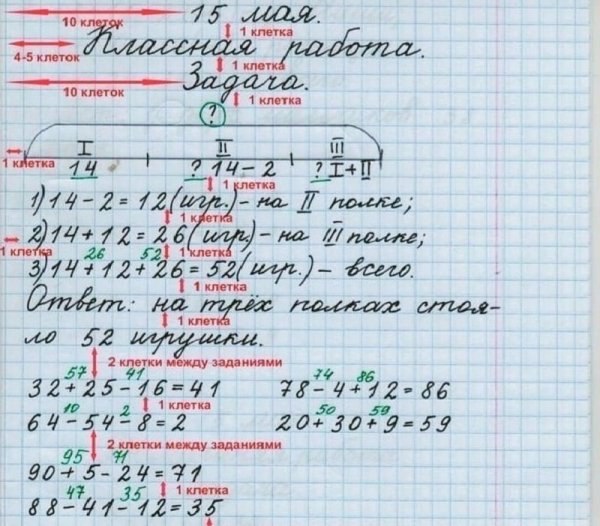 10 клеток 15 мая.
1 клетка
4-5 клеток Классная работа.
1 клетка
10 клеток Задача.
1 клетка
?
I II III
1 клетка 14 ? 14-2 ? I+II
1 клетка
1) 14-2=12(игр.)- на II полке;
1 клетка
2) 14+12=26(игр.)- на III полке;
1 клетка 26 52 1 клетка
3) 14+12+26=52(игр.)- всего.
1 клетка
Ответ: на трёх полках стоя-
1 клетка
ло 52 игрушки.
2 клетки между заданиями
57 41 74 86
32+25-16=41 78-4+12=86
1 клетка
10 2 50 59
64-54-8=2 20+30+9=59
2 клетки между заданиями
95 71
90+5-24=71
47 35 1 клетка
88-41-12=35